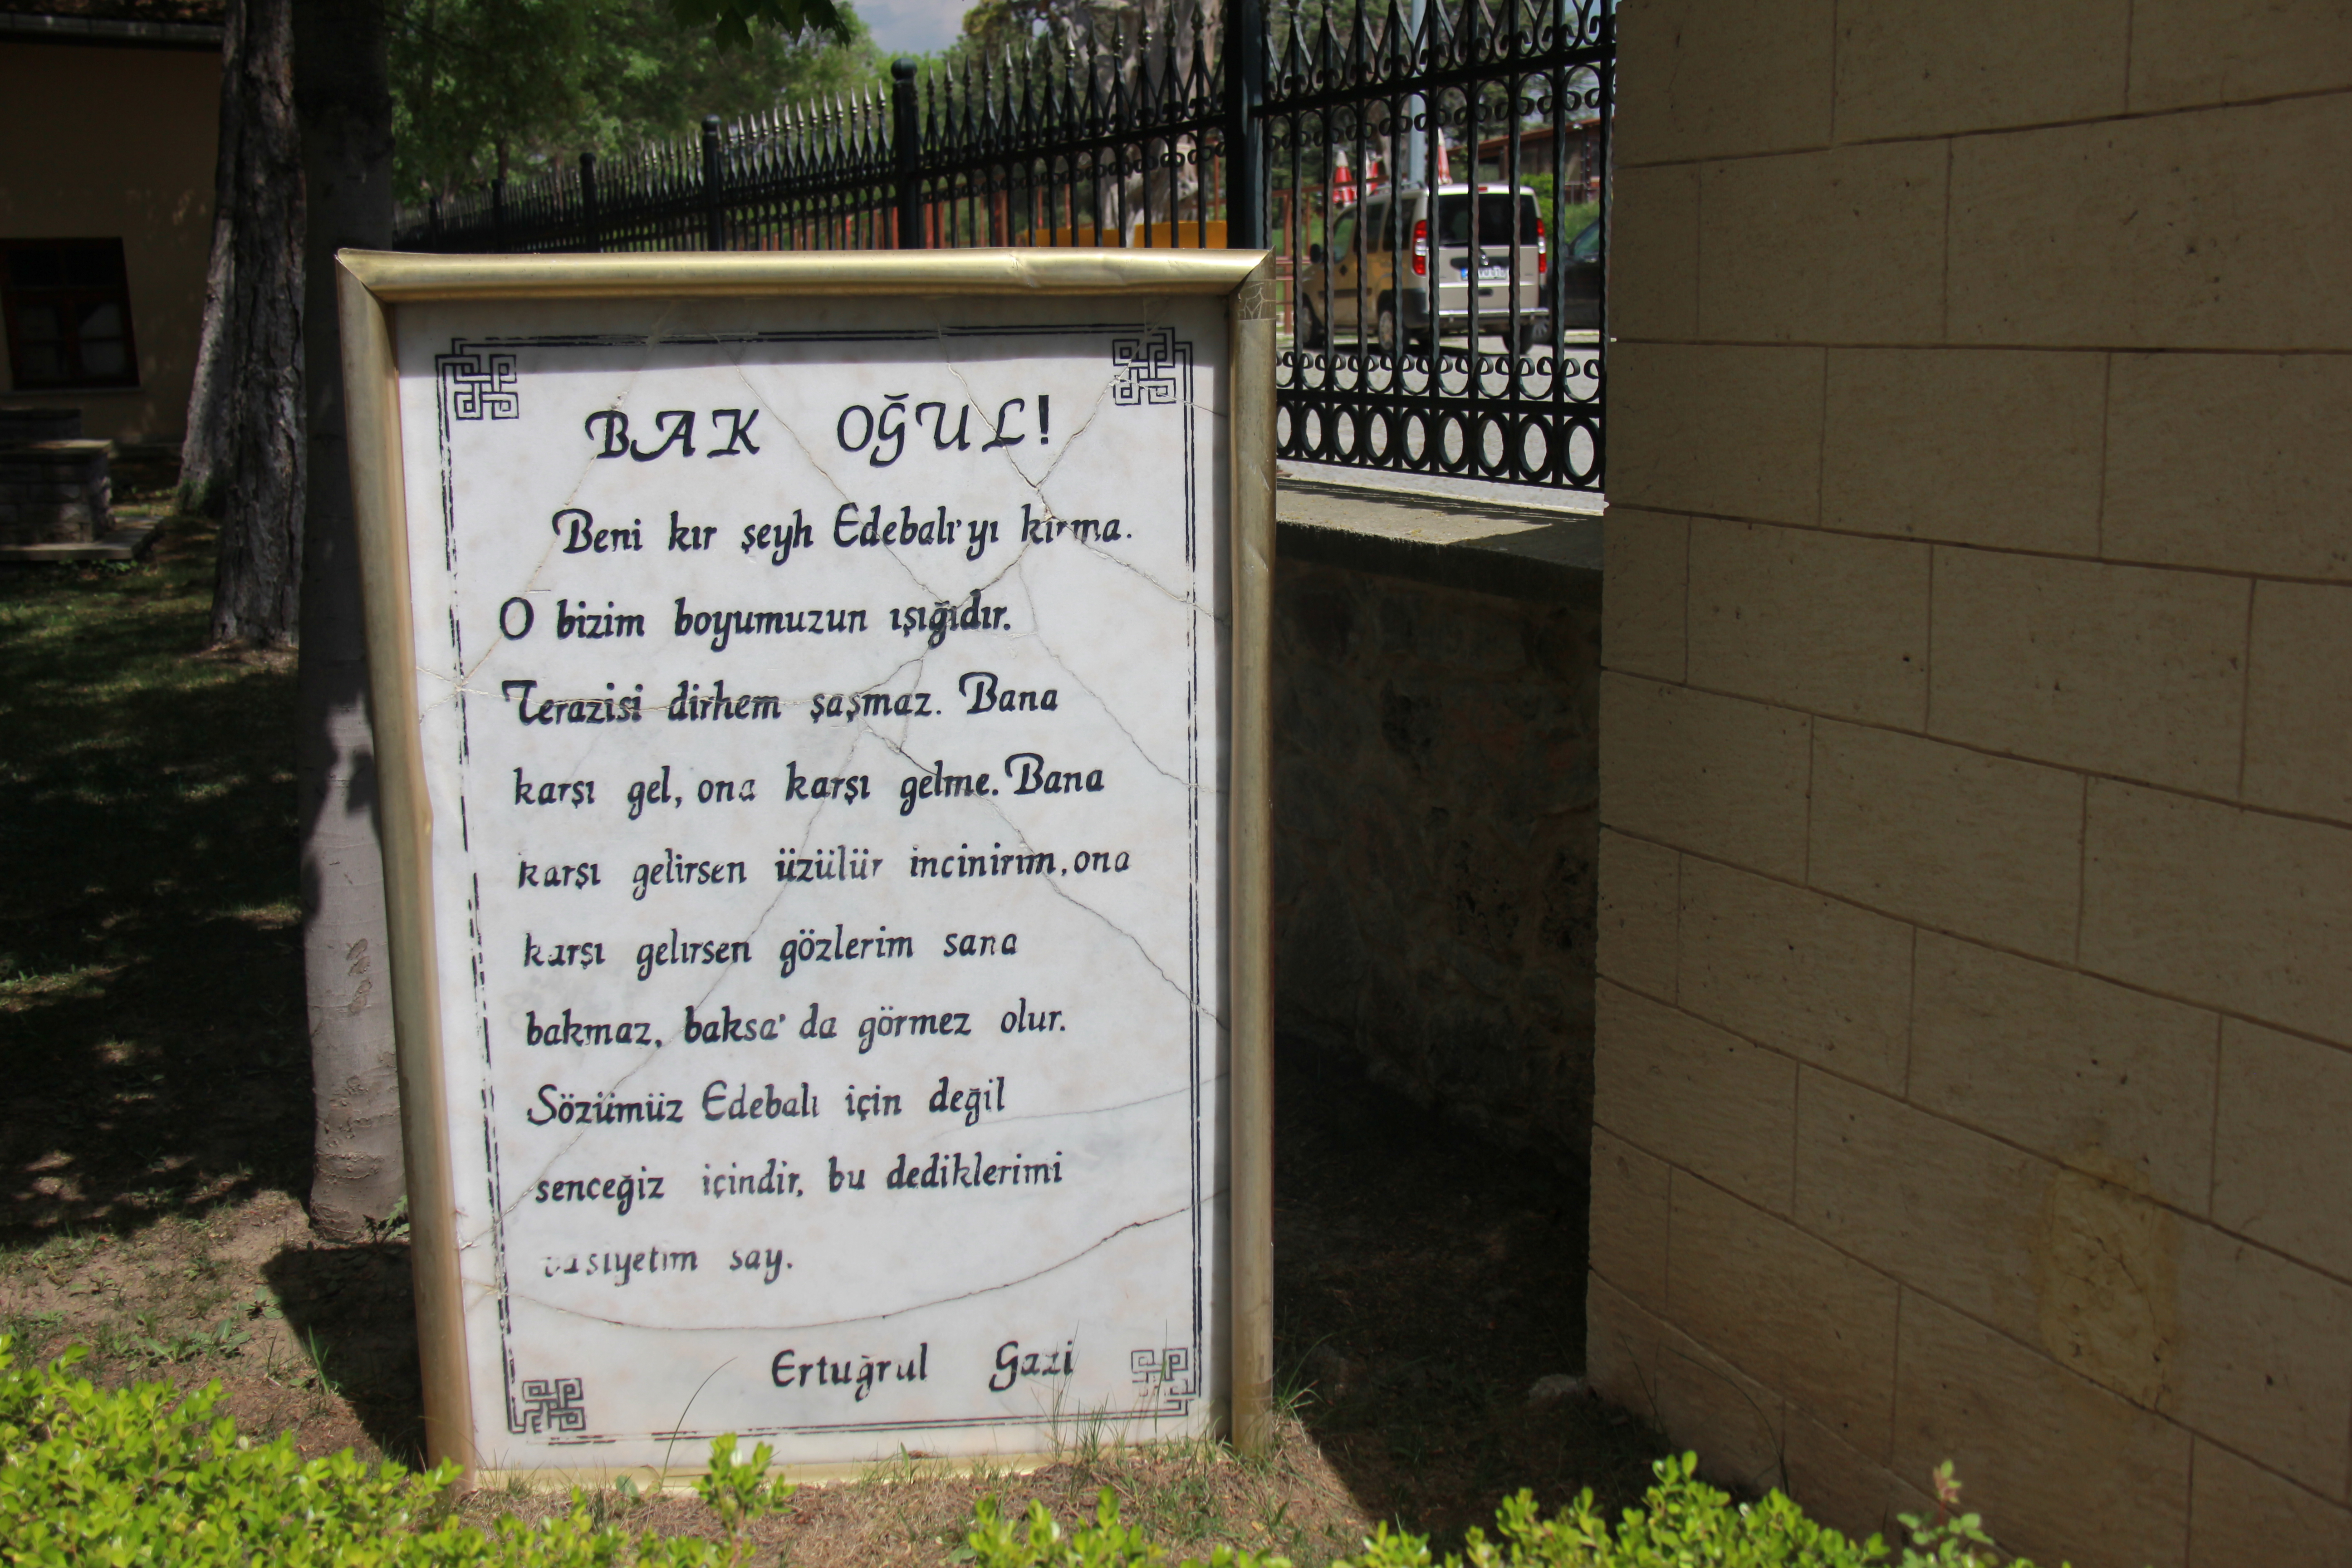 BAK OĞUL!
Beni kır şeyh Edebalı'yı kırma.
O bizim boyumuzun ışığıdır.
Terazisi dirhem şaşmaz. Bana
karşı gel, ona karşı gelme. Bana
karşı gelirsen üzülür incinirim, ona
karşı gelırsen gözlerim sana
bakmaz, baksa' da görmez olur.
Sözümüz Edebalı için değil
senceğiz içindir, bu dediklerimi
vasiyetim say.
Ertuğrul Gazi